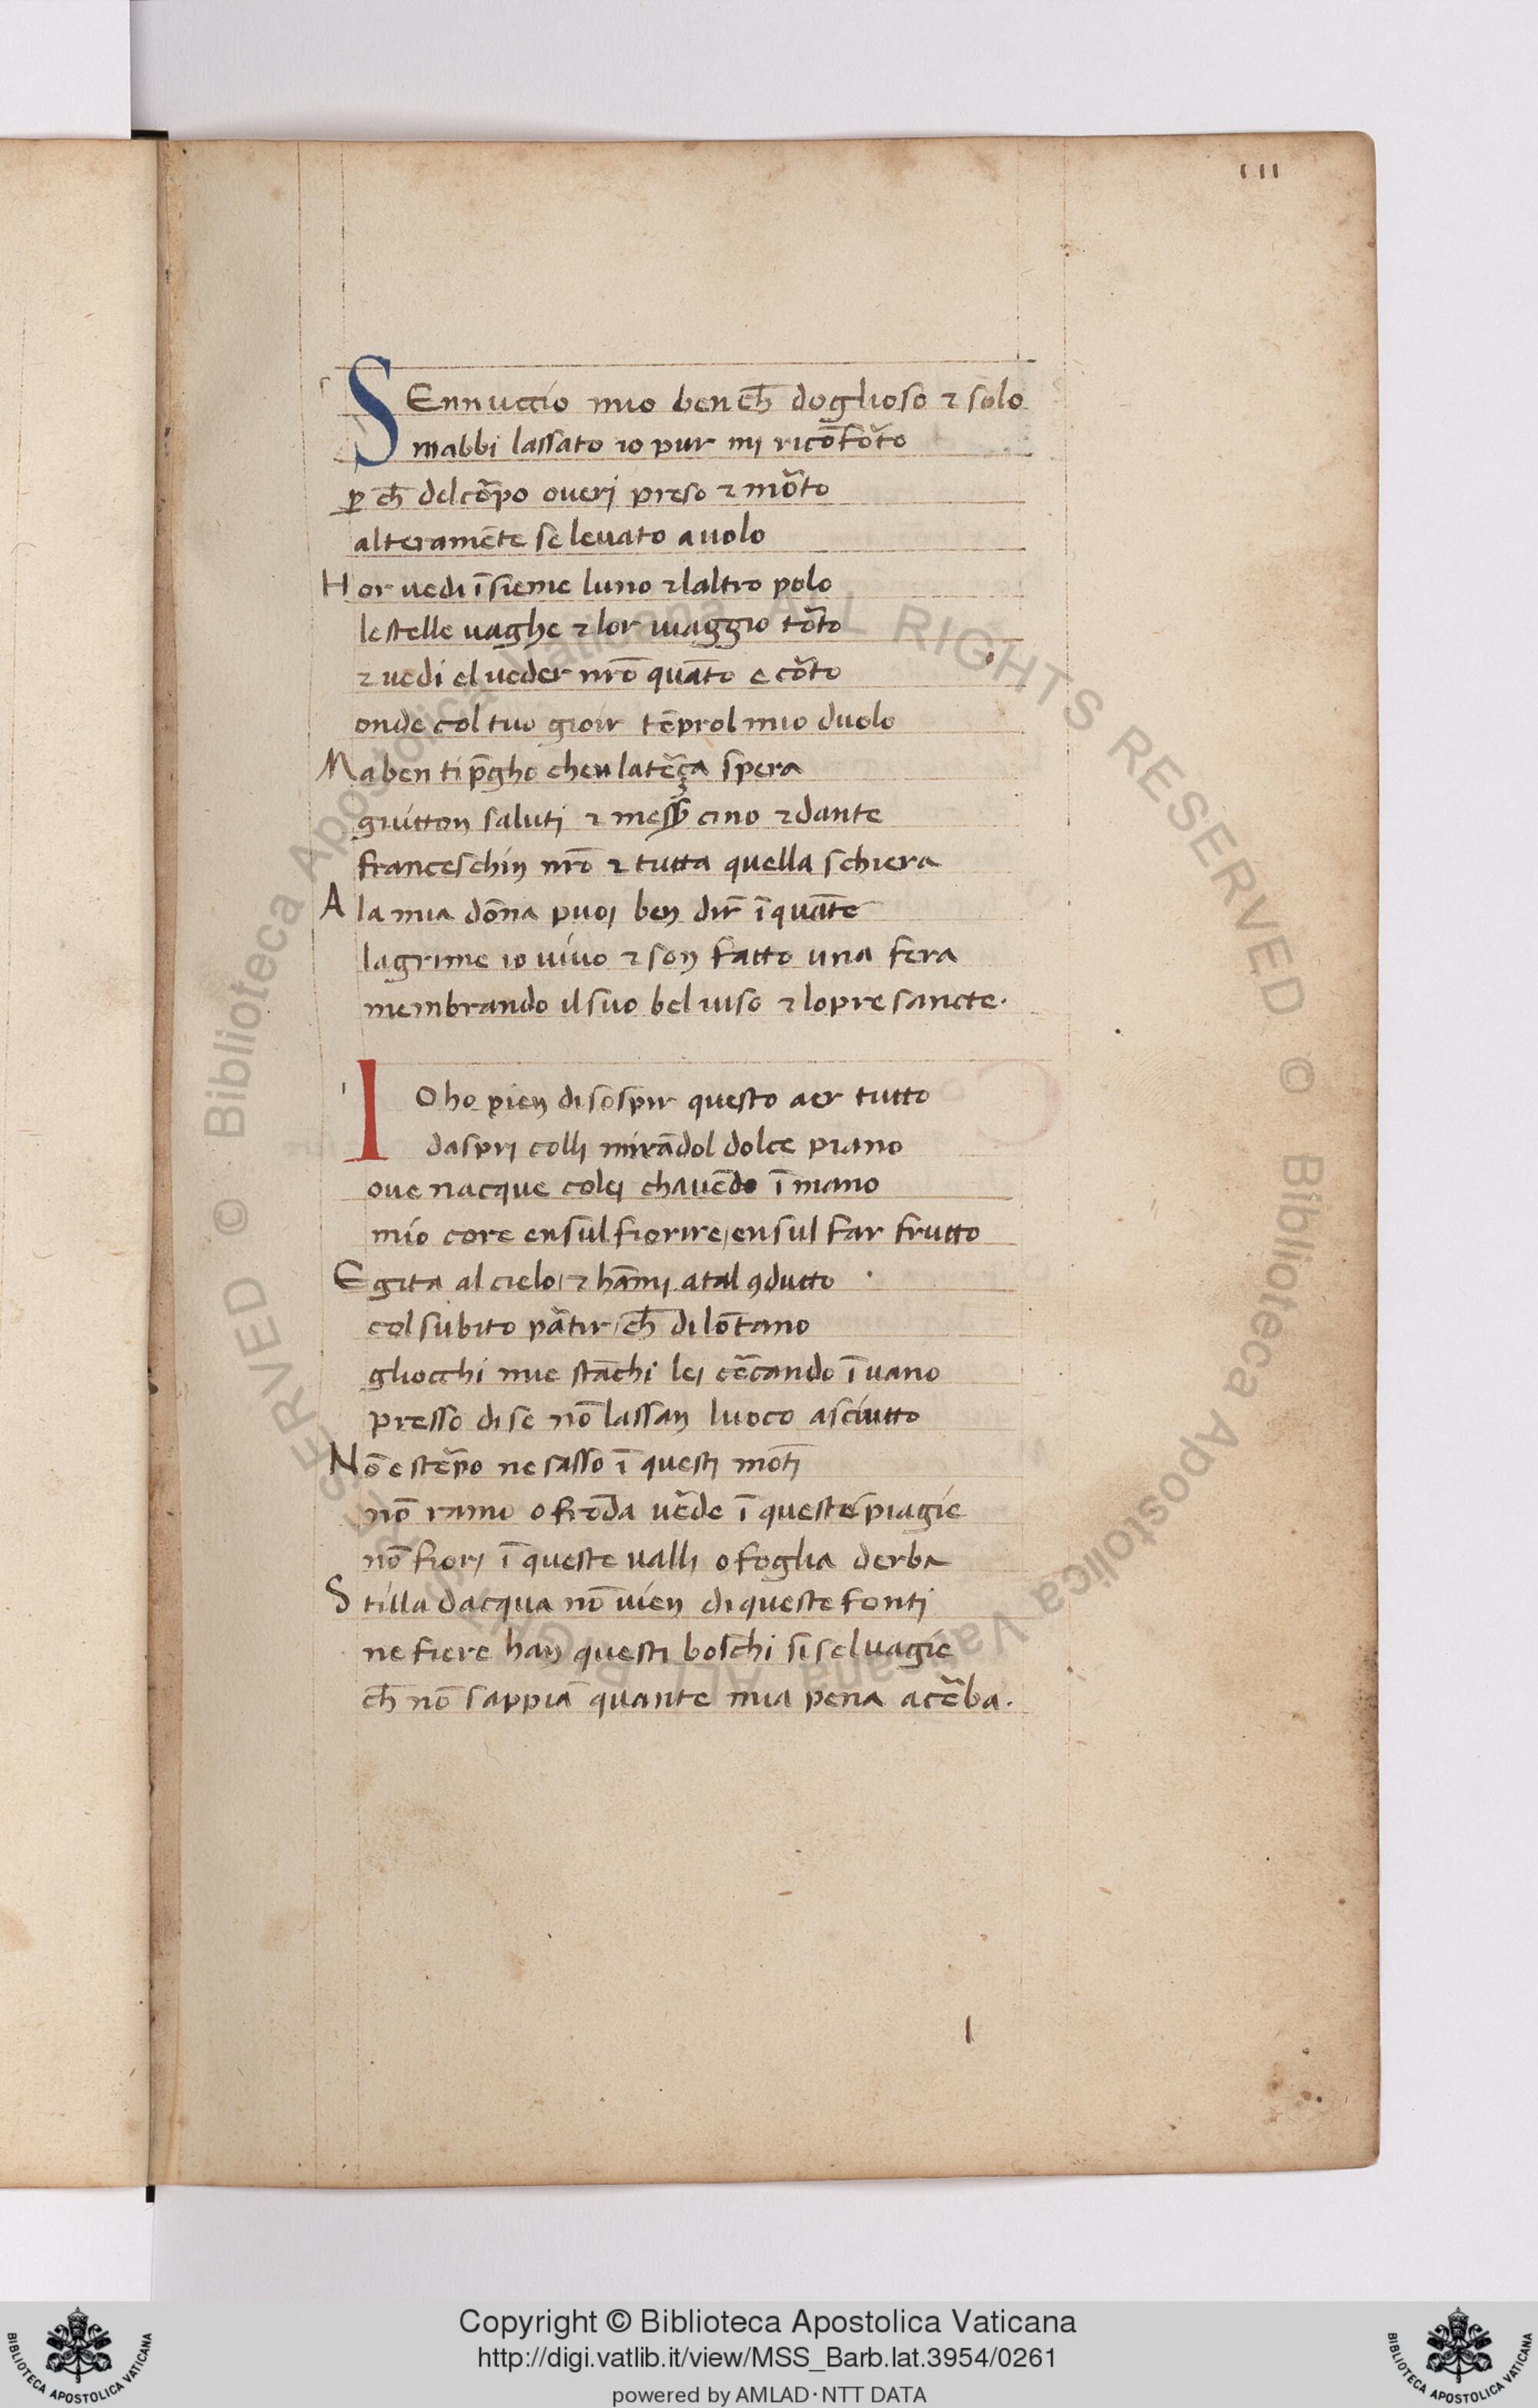 111
SEnnuccio mio ben ch̄ doglioso ⁊ solo
mabbi lassato io pur mj ricōfōto
ꝑ ch̄ del cōpo overj preso ⁊ mōto
alteramēte se levato a volo
Hor vedi īsieme luno ⁊ laltro polo
le stelle vaghe ⁊ lor viaggio tōto
⁊ vedi el veder nr̄o quāto e cōto
onde col tuo gioir tēprol mio duolo
Ma ben ti p̄gho chen la tēça spera
guitton salutj ⁊ mess̄ cino ⁊ dante
franceschin nr̄o ⁊ tutta quella schiera
A la mia dōna puoj ben dir̄ ī quāte
lagrime io vivo ⁊ son fatto una fera
membrando il suo bel viso ⁊ lopre sancte.
IO ho pien di sospir questo aer tutto
daspri collj mirādol dolce piano
ove nacque colej chavēdo ī mano
mio core en sul fiorire/en sul far frutto
E gita al cielo/⁊ hāmj a tal ꝯdutto
col subito pātir/ch̄ di lōtano
gliocchi mie stāchi lej cēcando ī vano
presso di se nō lassan luoco asciutto
Nō e stēpo ne sasso ī questj mōtj
nō ramo o frōda vēde ī queste piagie
nō fiorj ī queste vallj o foglia derba
Stilla dacqua nō vien di queste fontj
ne fiere han questi boschi si selvagie
ch̄ nō sappiā quante mia pena acēba.
© Biblioteca Apostolica Vaticana ALL RIGHTS RESERVED © Biblioteca Apostolica Vaticana ALL RIGHTS RESERVED
Copyright © Biblioteca Apostolica Vaticana
http://digi.vatlib.it/view/MSS_Barb.lat.3954/0261
powered by AMLAD·NTT DATA
BIBLIOTECA APOSTOLICA VATICANA
BIBLIOTECA APOSTOLICA VATICANA